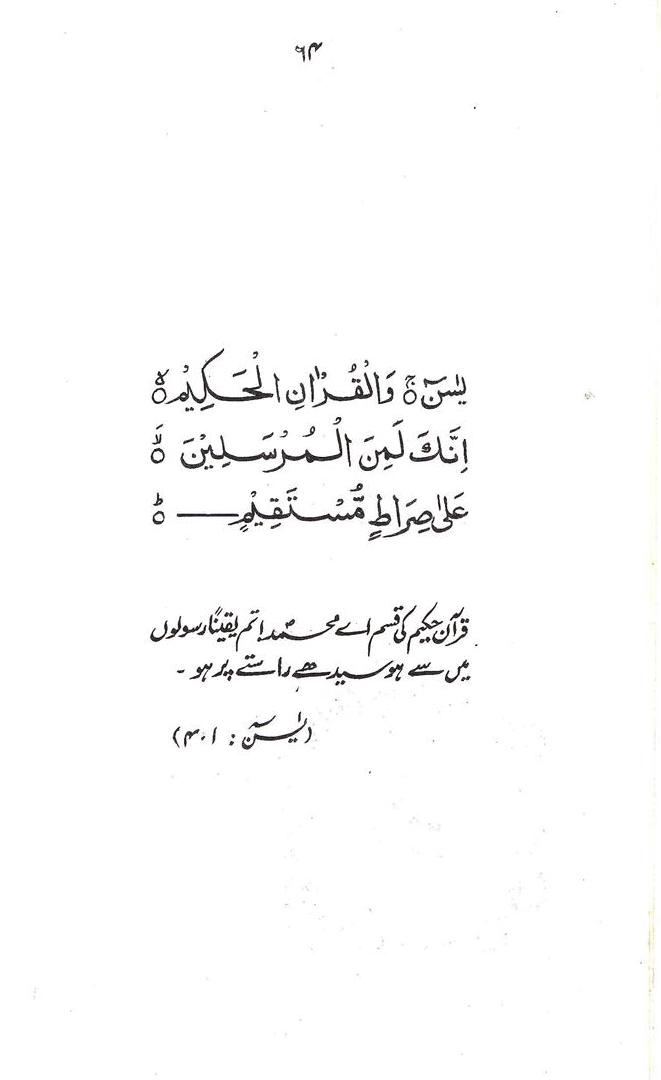 ۶۴
یٰسٓ ۚ وَالْقُرْاٰنِ الْحَكِيْمِ ۙ
اِنَّكَ لَمِنَ الْمُرْسَلِيْنَ ۙ
عَلٰى صِرَاطٍ مُّسْتَقِيْمٍ ؕ
قرآن حکیم کی قسم اے محمدؐ! تم یقیناً رسولوں
میں سے ہو سیدھے راستے پر ہو۔
(یٰسٓ: ۱۔۴)